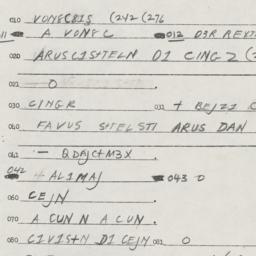 010 VONGCBIS (242 (276
011 A VONGC 012 D3R REXT
020 ARUSCISHTELN DI CING 2 (2
021 - O
030 CINGR 031 + BEJZI C
040 FAVUS SHTELSTI ARUS DAN
041 - QDAJCTM3X
042 + ALIMAJ 043 O
060 CEJN
070 A CUN N A CUN.
080 CIVISTN DI CEJN 081 O